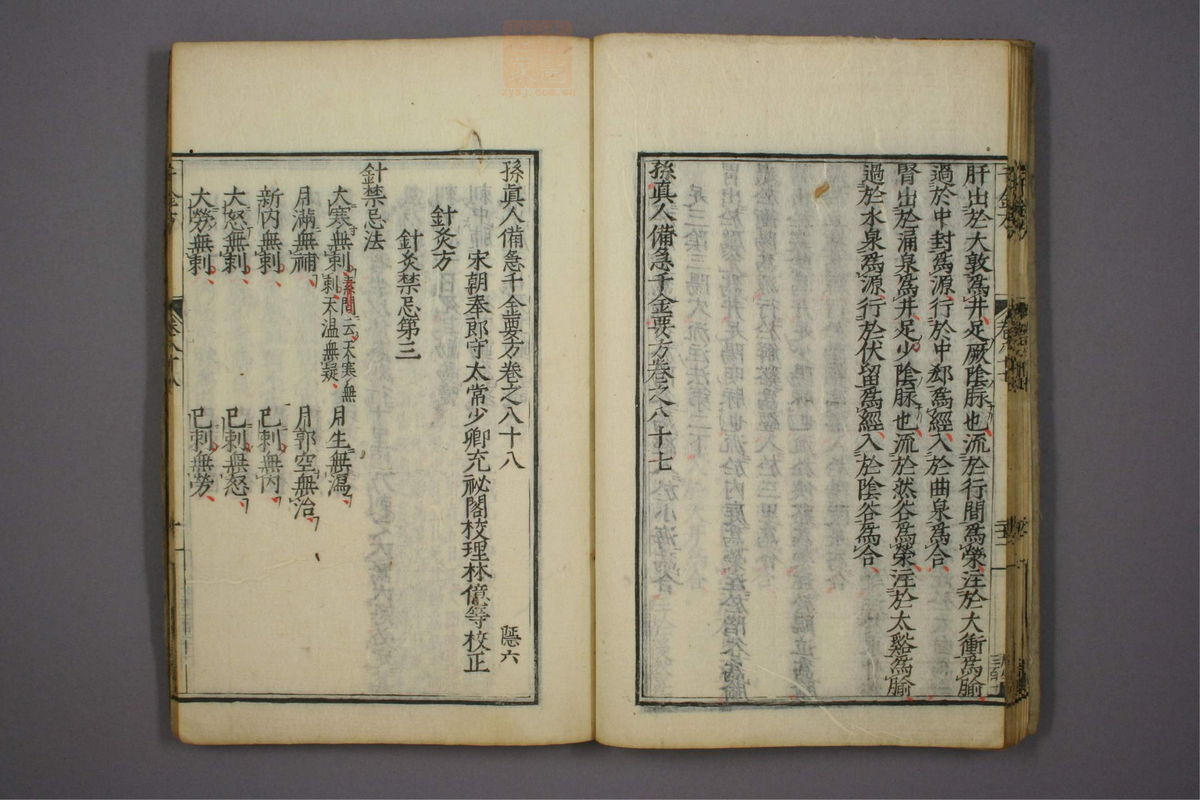 肝出於大敦爲井足厥陰脉也流於行間爲榮注於大衝爲腧
過於中封爲源行於中郄爲經入於曲泉爲合
腎出於涌泉爲井足少陰脉也流於然谷爲榮注於太谿爲腧
過於水泉爲源行於伏留爲經入於陰谷爲合
孫眞人備急千金要方卷之八十七
孫眞人備急千金要方卷之八十八 隱六
宋朝奉郎守太常少卿充祕閣校理林億等校正
針灸方
針灸禁忌第三
針禁忌法
大寒無刺素問云天寒無刺天温無疑 月生無瀉
月滿無補 月郭空無治
新内無刺 已刺無内
大怒無刺 已刺無怒
大勞無刺 已刺無勞
千金方 卷八十八
zysj.com.cn